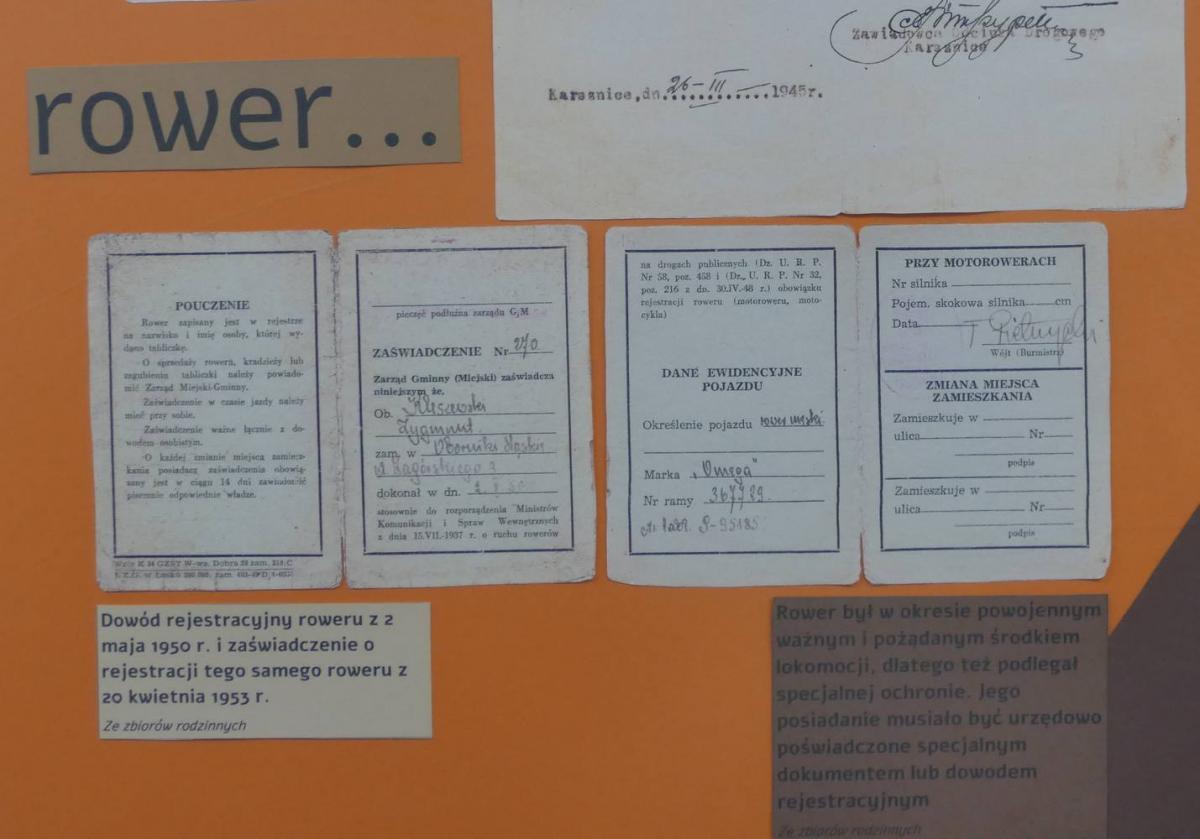 Zawiadowca Odcinka Drogowego
Karsznice
Karsznice, dn. 26-III 1945r.
rower...
POUCZENIE
Rower zapisany jest w rejestrze
na nazwisko i imię osoby, której wy-
dano tabliczkę.
O sprzedaży roweru, kradzieży lub
zagubieniu tabliczki należy powiado-
mić Zarząd Miejski-Gminny.
Zaświadczenie w czasie jazdy należy
mieć przy sobie.
Zaświadczenie ważne łącznie z do-
wodem osobistym.
O każdej zmianie miejsca zamiesz-
kania posiadacz zaświadczenia obowią-
zany jest w ciągu 14 dni zawiadomić
pisemnie odpowiednie władze.
Wzór K 34 GZST W-wa. Dobra 28 zam.
pieczęć podłużna zarządu G/M
ZAŚWIADCZENIE Nr 270
Zarząd Gminny (Miejski) zaświadcza
niniejszym że,
Ob.
Zygmunt
zam. w Oborniki Śląskie
3
dokonał w dn.
stosownie do rozporządzenia Ministrów
Komunikacji i Spraw Wewnętrznych
z dnia 15.VII.-1937 r. o ruchu rowerów
na drogach publicznych (Dz. U. R. P.
Nr 58, poz. 458 i (Dz. U. R. P. Nr 32,
poz. 216 z dn. 30.IV.-48 r.) obowiązku
rejestracji roweru (motoroweru, moto-
cykla)
DANE EWIDENCYJNE
POJAZDU
Określenie pojazdu rower męski
Marka „Omega"
Nr ramy 367729
S-95185
PRZY MOTOROWERACH
Nr silnika
Pojem. skokowa silnika cm
Data
Wójt (Burmistrz)
ZMIANA MIEJSCA
ZAMIESZKANIA
Zamieszkuje w
ulica Nr
podpis
Zamieszkuje w
ulica Nr
podpis
Dowód rejestracyjny roweru z 2
maja 1950 r. i zaświadczenie o
rejestracji tego samego roweru z
20 kwietnia 1953 r.
Ze zbiorów rodzinnych
Rower był w okresie powojennym
ważnym i pożądanym środkiem
lokomocji, dlatego też podlegał
specjalnej ochronie. Jego
posiadanie musiało być urzędowo
poświadczone specjalnym
dokumentem lub dowodem
rejestracyjnym
Ze zbiorów rodzinnych